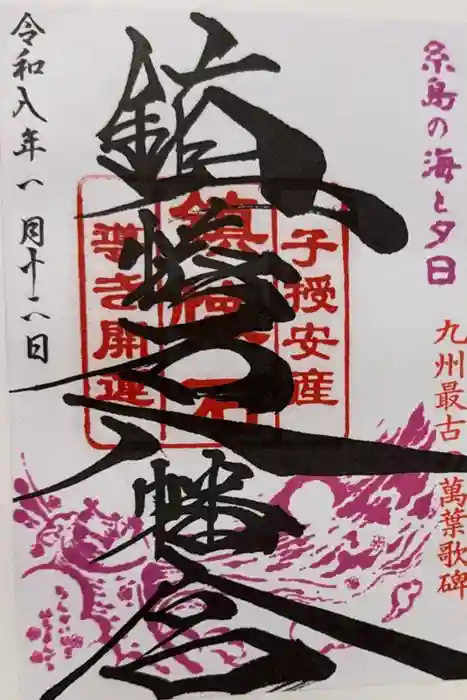 糸島の海と夕日
九州最古の萬葉歌碑
鎮懐石八幡宮
子授安産
鎮懐石
導き開運
令和八年一月十二日